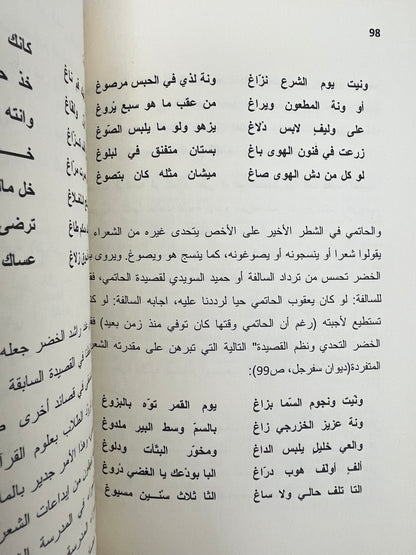 98
ونيت يوم الشرع نزّاغ ونة لذي في الحبس مرصوغ
أو ونة المطعون ويراغ من عقب ما هو سبع يروغ
على وليفٍ لابس دلاغ يزهو ولو ما يلبس الصّوغ
زرعت في فنون الهوى باغ بستان متفنق في لبلوغ
لو كل من دش الهوى صاغ ميشان مثله كان بتصوغ
والحاتمي في الشطر الأخير على الأخص يتحدى غيره من الشعراء
يقولوا شعرا أو ينسجونه أو يصوغونه، كما ينسج هو ويصوغ. ويروى
الخضر تحسس من ترداد السالفة أو حميد السويدي لقصيدة الحاتمي،
للسالفة: لو كان يعقوب الحاتمي حيا لرددنا عليه، اجابه السالفة: لو كنت
تستطيع لأجبته (رغم أن الحاتمي وقتها كان توفي منذ زمن بعيد)
الخضر التحدي ونظم القصيدة" التالية التي تبرهن على مقدرته الشعرية
المتفردة(ديوان سفرجل، ص99):
ونيت ونجوم السّما بزاغ يوم القمر توّه بالبزوغ
ونة عزيز الخزرجي زاغ بالسمّ وسط البير ملدوغ
والغي خليلٍ يلبس الداغ ومخوّر البتّات ودلوغ
ألفٍ أولف هوب درّاغ البا بودّعك يا الغضي دَروغ
التا تلف حالي ولا ساغ الثا ثلاث سنّين مسيوغ
كانك
خذ
وانته
خل مال
ترضى
عساك
راشد الخضر جعله
في القصيدة السابقة
في قصائد أخرى
الطلاب بعلوم القرآ
الأمر جدير بالما
من إبداعات الشعر
في المدرسة